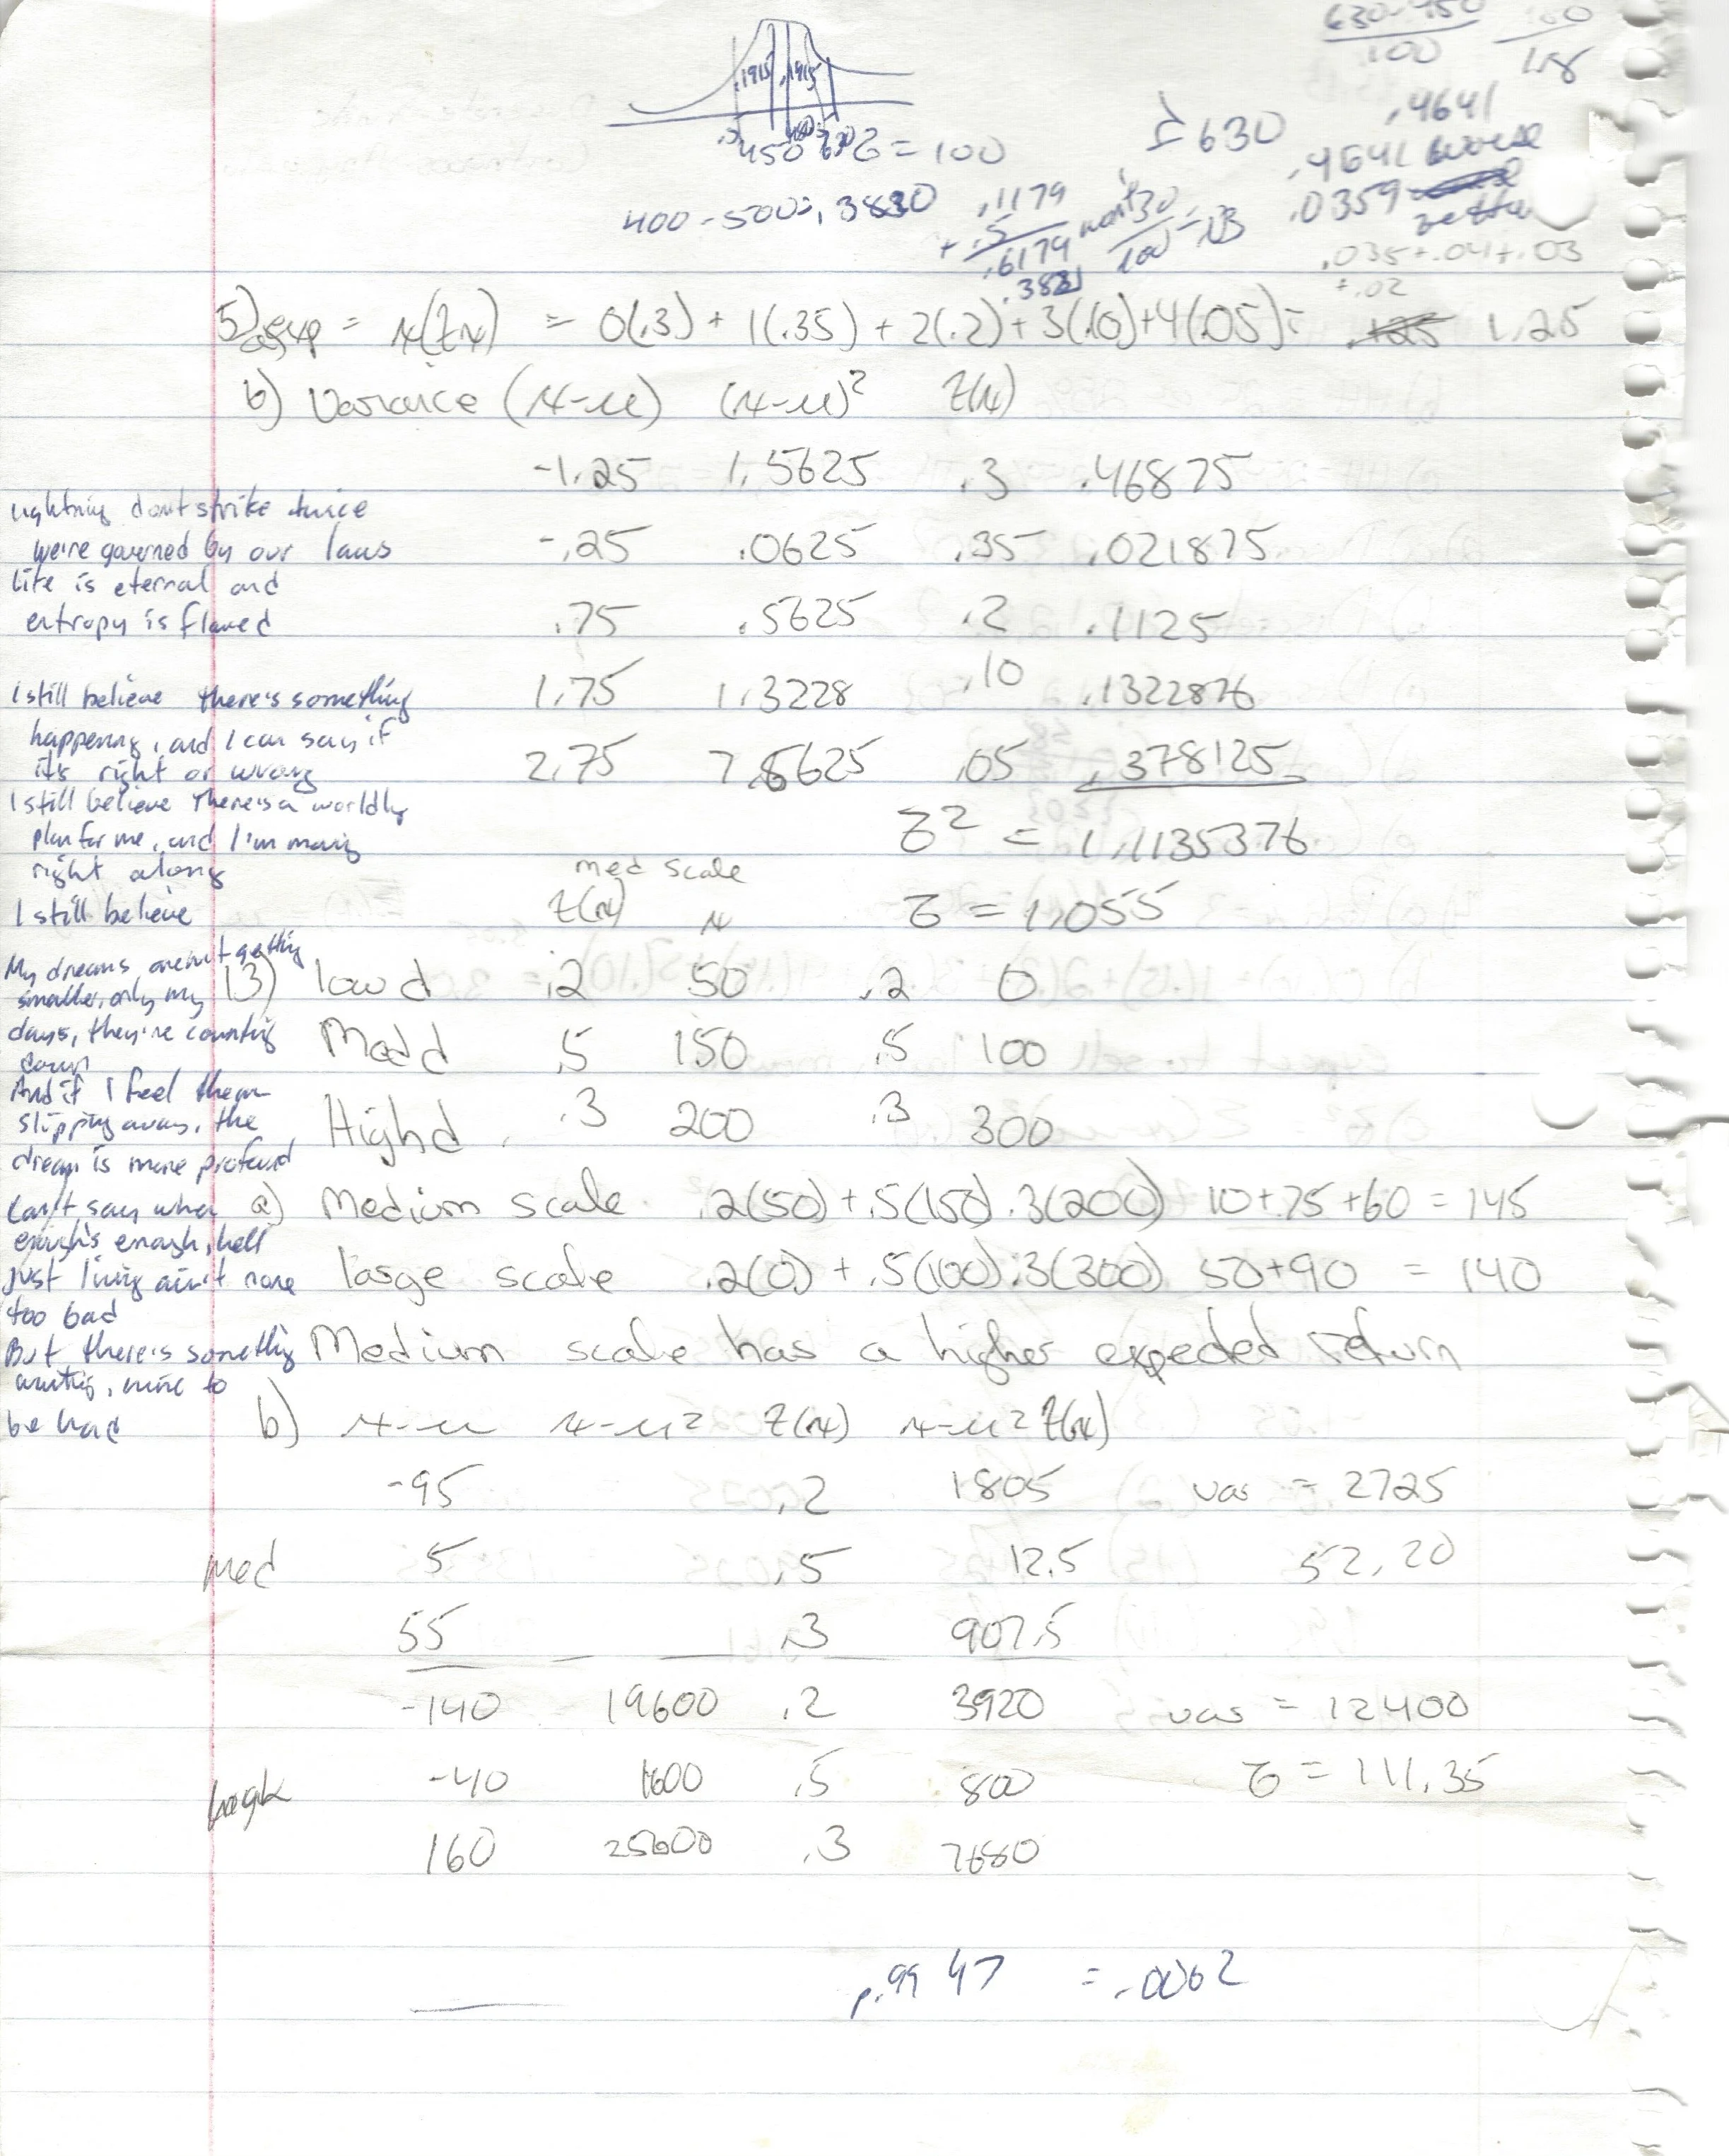 630-450
100
1.8
.1915 .1915
450 630 σ = 100
≥ 630
.4641
.4641 worse
.0359 better
400 - 500 = .3830
.1179
+ .5
.6179
.3821
30
100
.035+.04+.03
+.02
5) a) exp = x(f(x)) = 0(.3) + 1(.35) + 2(.2) + 3(.10) + 4(.05) = 1.25
b) Variance (x-μ) (x-μ)² f(x)
-1.25 1.5625 .3 .46875
-.25 .0625 .35 .021875
.75 .5625 .2 .1125
1.75 1.3228 .10 .1322876
2.75 7.5625 .05 .378125
σ² = 1.1135376
med scale
f(x) x σ = 1.055
13) low d .2 50 .2 0
Med d .5 150 .5 100
High d .3 200 .3 300
a) Medium scale .2(50) + .5(150) .3(200) 10+75+60 = 145
large scale .2(0) + .5(100) .3(300) 50+90 = 140
Medium scale has a higher expected return
b) x-μ x-μ² f(x) x-μ² f(x)
-95 .2 1805 var = 2725
med 5 .5 12.5 52.20
55 .3 907.5
-140 19600 .2 3920 var = 12400
-40 1600 .5 800 σ = 111.35
160 25600 .3 7680
.9947 = .0062
Lightning dont strike twice
we're governed by our laws
life is eternal and
entropy is flawed
I still believe there's something
happening, and I can say if
it's right or wrong
I still believe there's a worldly
plan for me, and I'm moving
right along
I still believe
My dreams aren't getting
smaller, only my
days, they're counting
down
And if I feel them
slipping away, the
dream is more profound
Can't say when
enough's enough, hell
just living ain't none
too bad
But there's something
waiting, more to
be had